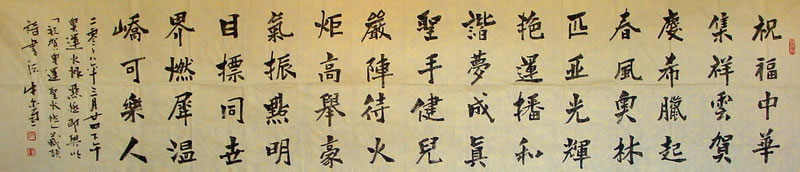 祝福中華
集祥雲賀
慶希臘起
春風奧林
匹亞光輝
艳運播和
諧夢成真
聖手健兒
嚴陣待火
炬高舉豪
氣振點明
目標同世
界燃犀温
嶠可樂人
二零零八年三月廿四下午
奧運火種點燃即興以
「祝賀奧運聖火燃」藏頭
詩書